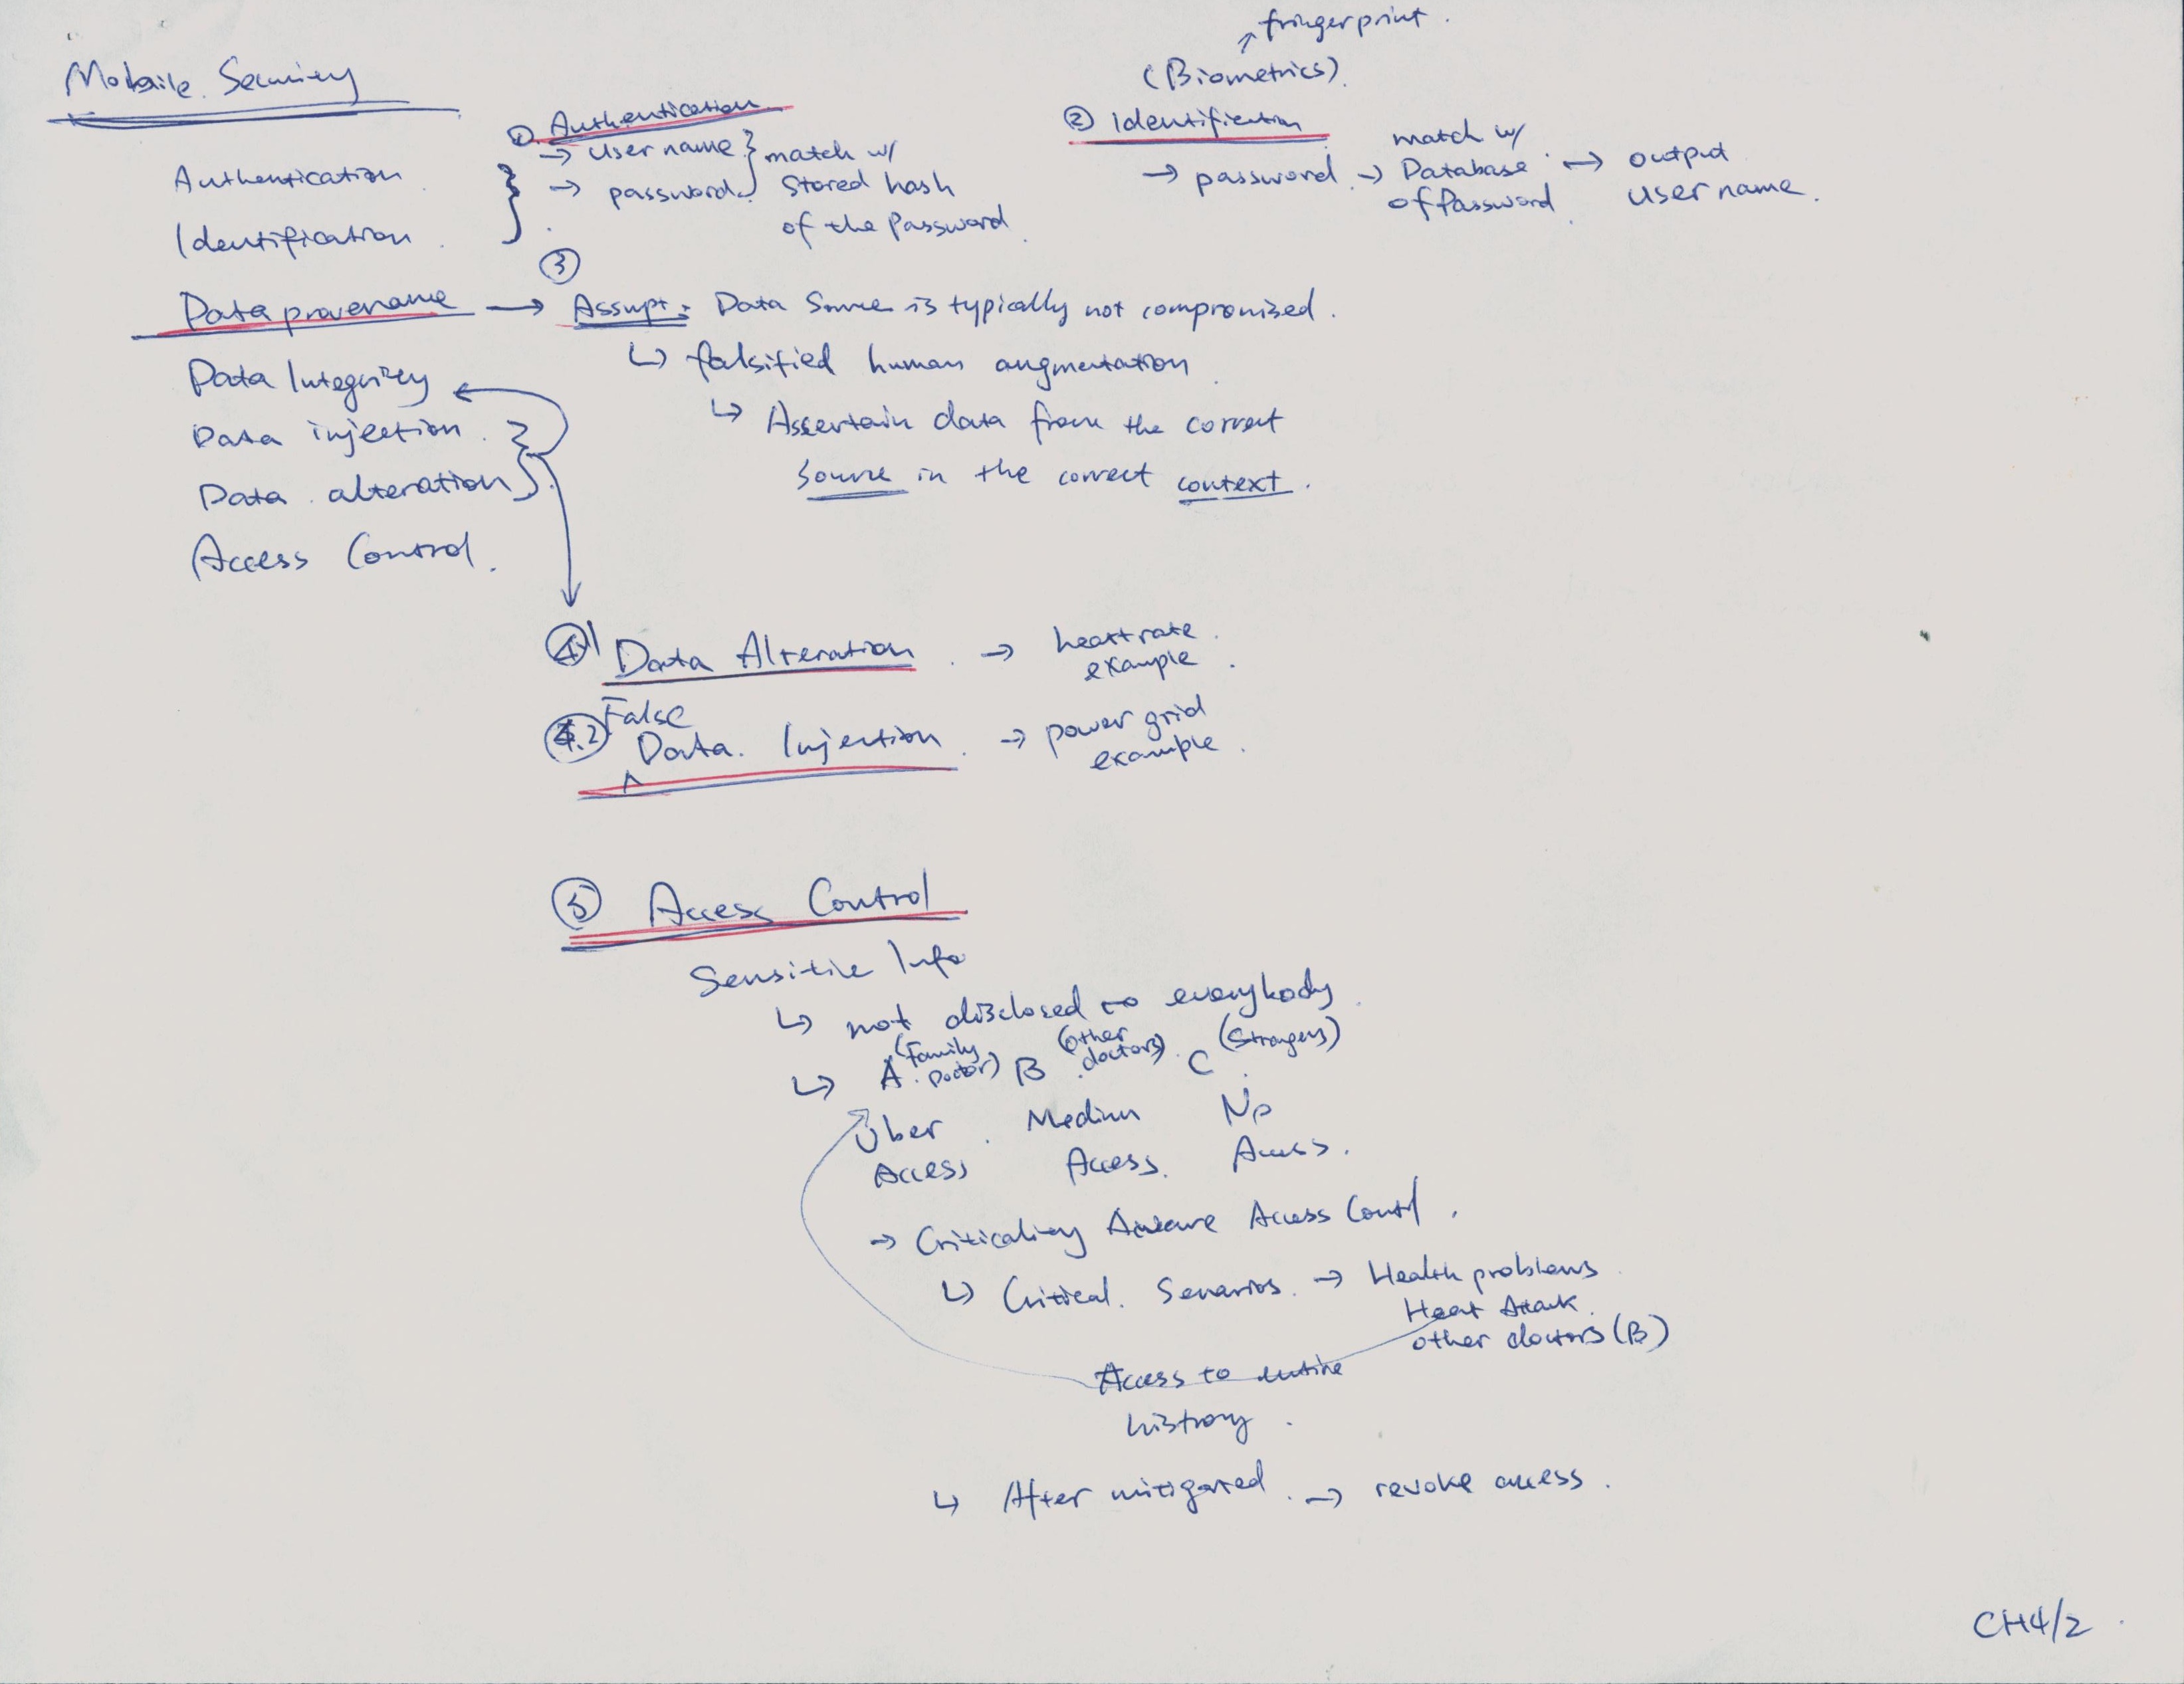 Mobaile Security
Authentication
Identification
Data provenance
Data Integrity
Data injection
Data alteration
Access Control.
① Authentication
→ user name } match w/
→ password. stored hash
of the Password
fringerprint.
(Biometrics).
② Identification
→ password. → match w/ Database of Password. → output user name.
③
→ Assupt: Data Source is typically not compromised.
↳ falsified human augmentation
↳ Ascertain data from the correct
source in the correct context.
4.1 Data Alteration. → heart rate
example.
4.2 False
Data Injection. → power grid
example.
⑤ Access Control
Sensitive Info
↳ not disclosed to everybody.
↳ A (Family Doctor) B (other doctors). C (Strangers)
Über Medium No
Access Access. Access.
→ Criticality Aware Access Contrl.
↳ Critical. Senarios. → Health problems
Heat Attack.
other doctors (B)
Access to entire
histroy.
↳ After mitigated. → revoke access.
CH4/2